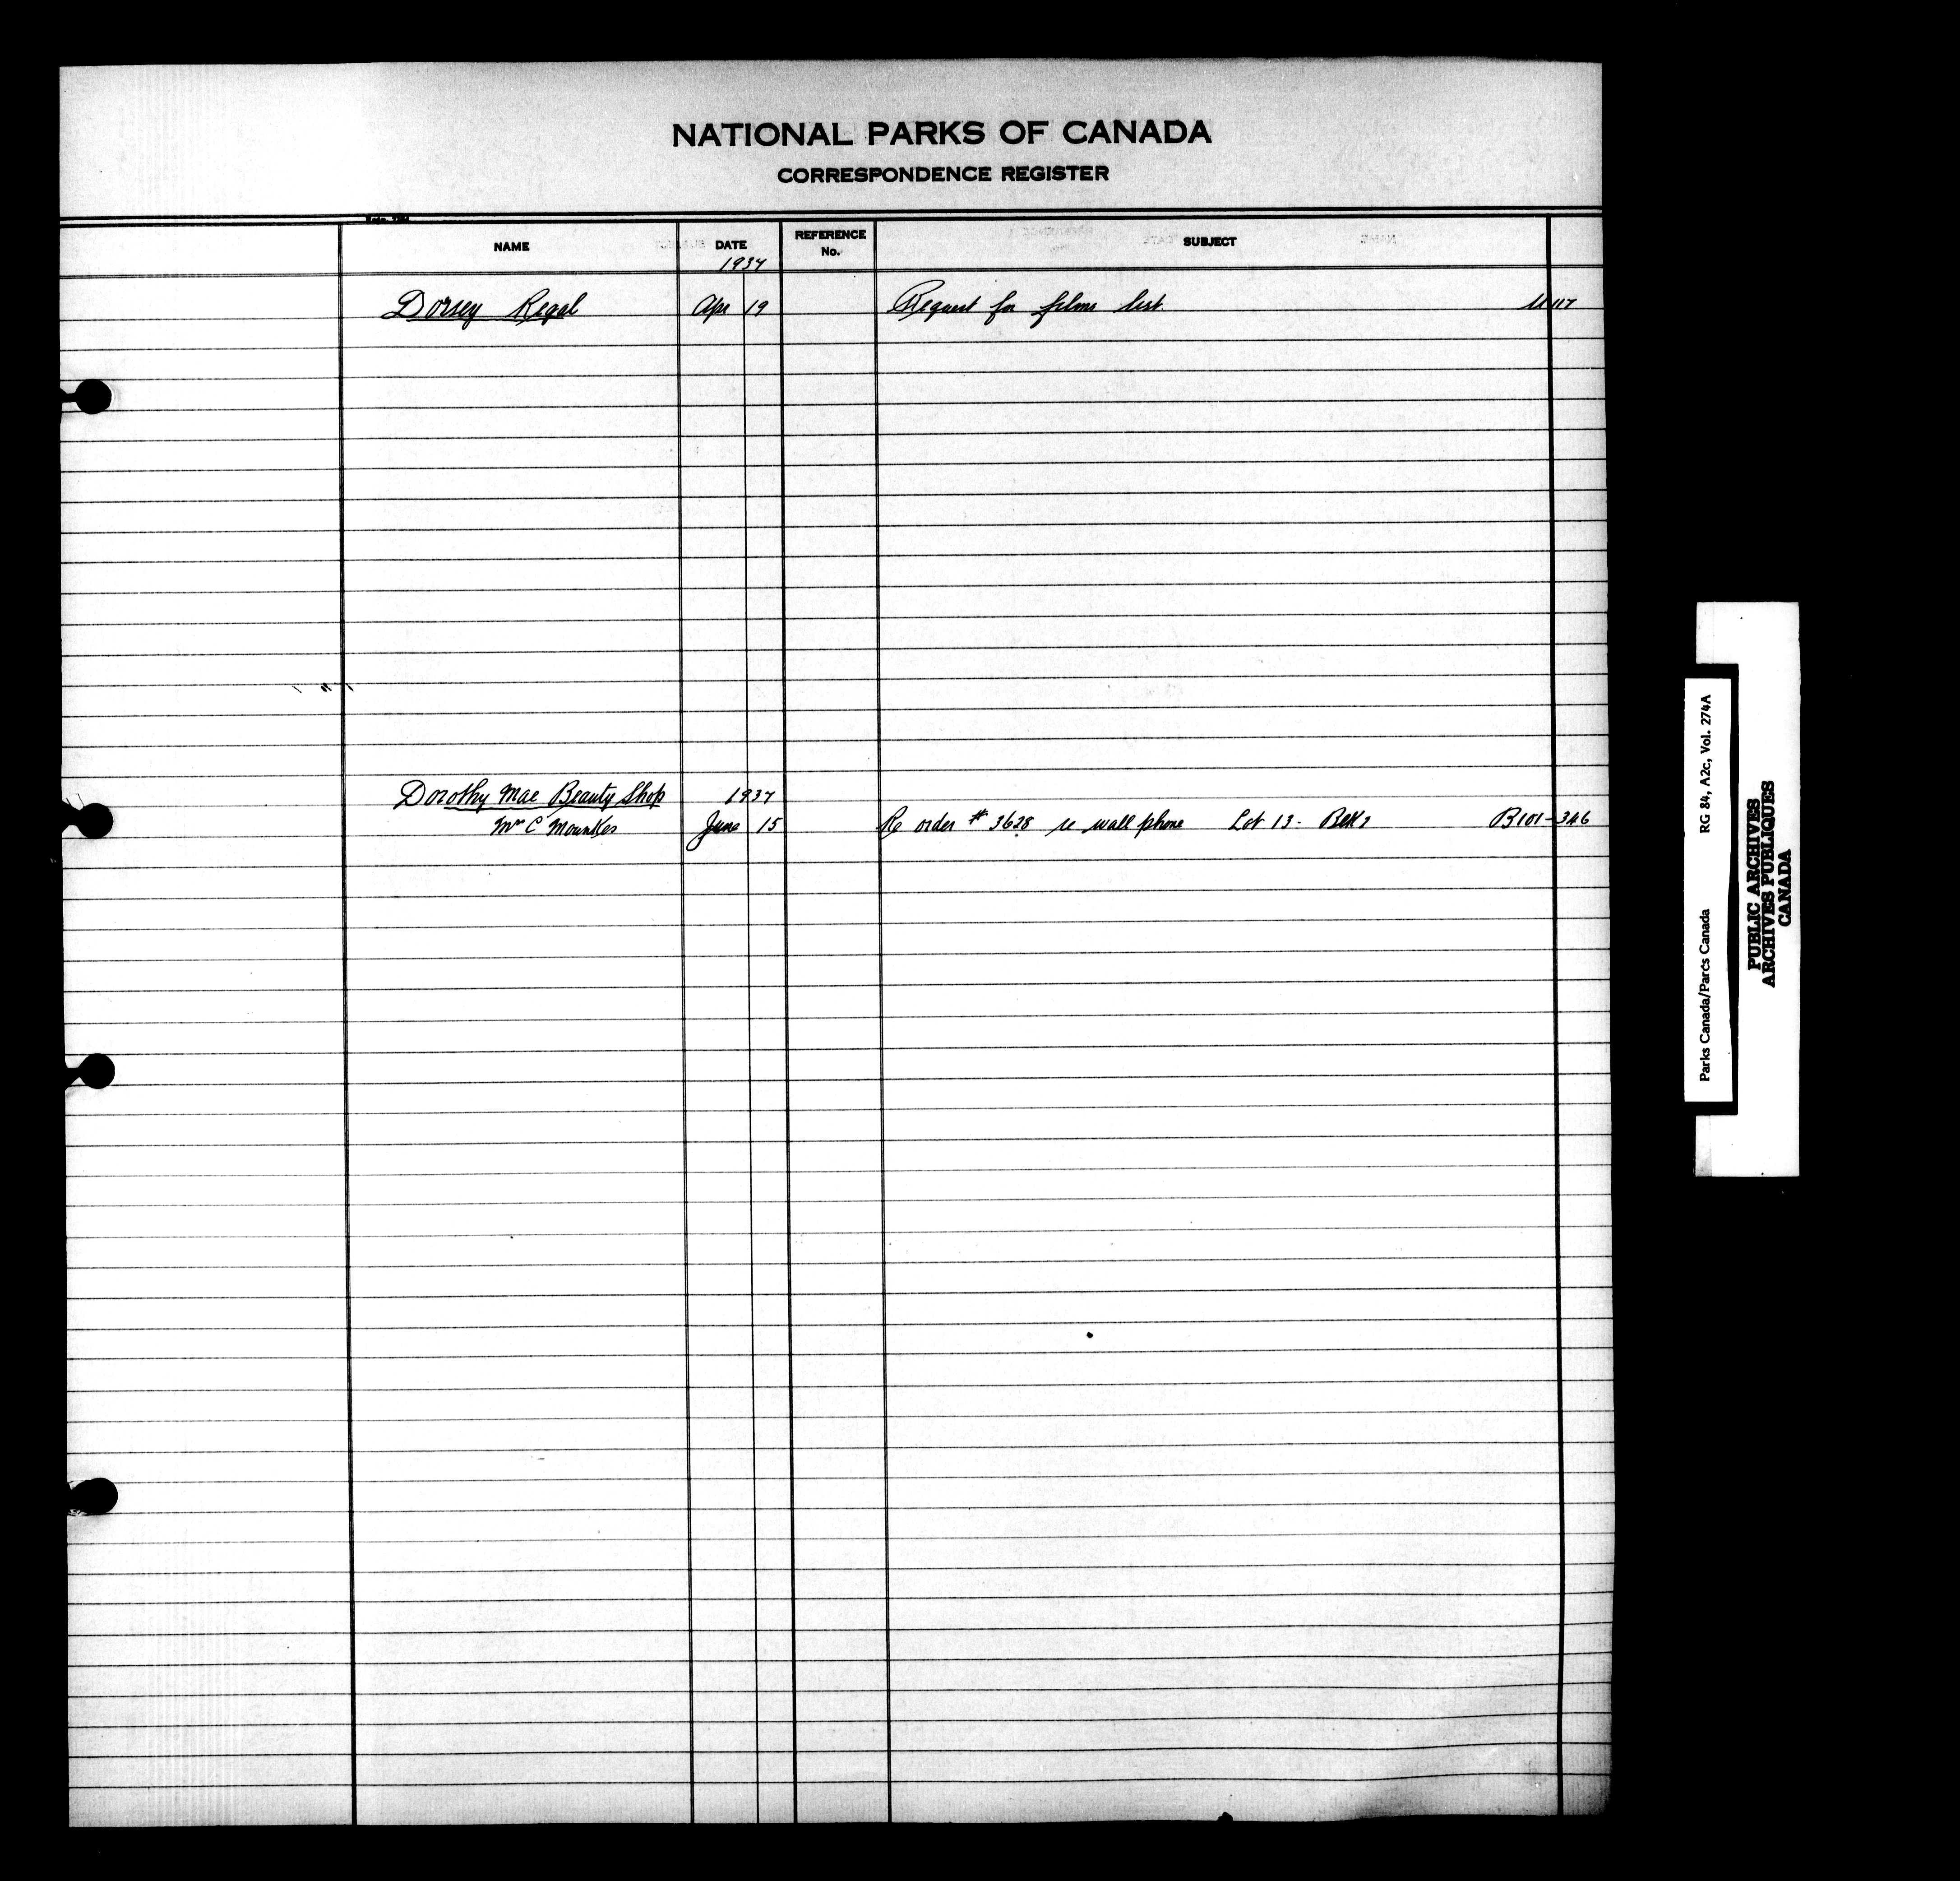 NATIONAL PARKS OF CANADA
CORRESPONDENCE REGISTER
NAME DATE REFERENCE No. SUBJECT
1937
Dorsey Regal Apr 19 Request for films list. U117
Dorothy Mae Beauty Shop 1937
C June 15 Re order # 3628 re wall phone Lot 13- B101-346
Parks Canada/Parcs Canada RG 84, A2c, Vol. 274A
PUBLIC ARCHIVES
ARCHIVES PUBLIQUES
CANADA